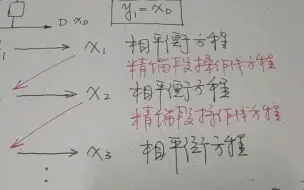 D x_D
y₁ = x_D
x₁ 相平衡方程
精馏段操作线方程
x₂ 相平衡方程
精馏段操作线方程
x₃ 相平衡方程